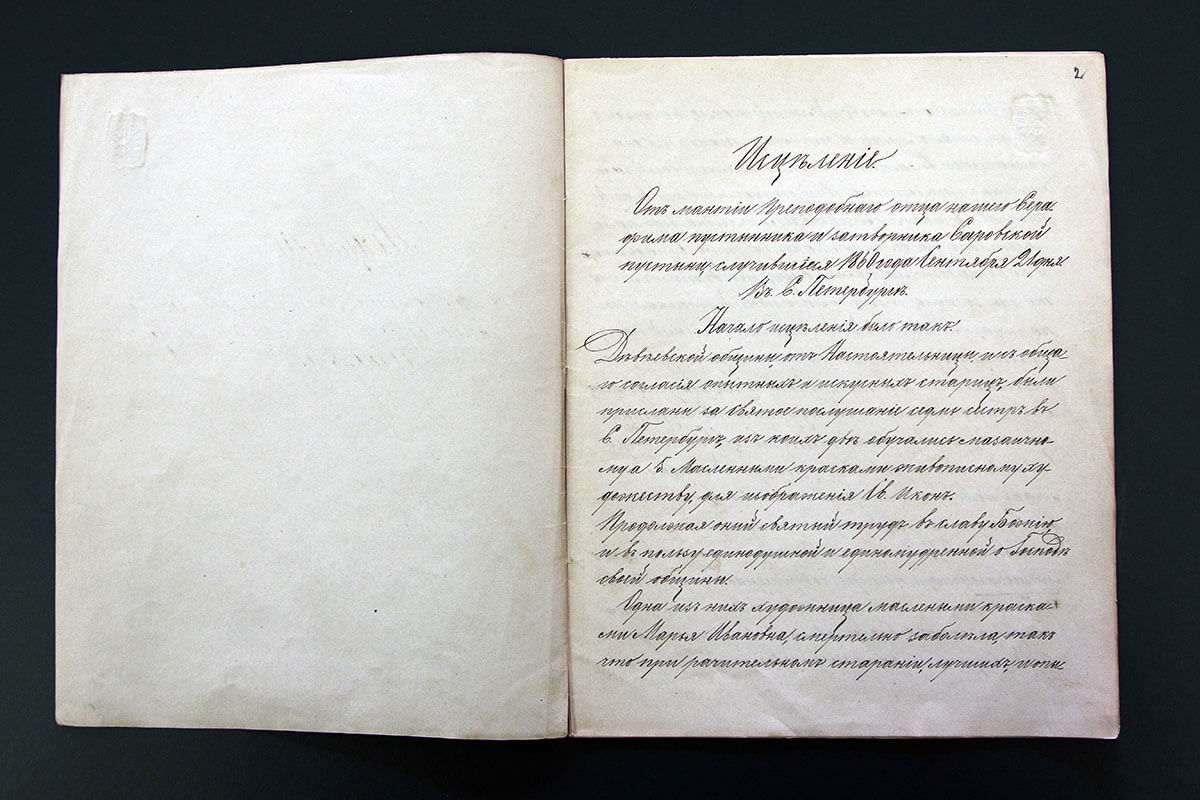 2
Исцѣленіе.
Отъ мантіи Преподобнаго отца нашего Сера-
фима пустынника и затворника Саровской
пустыни, случившіяся 1860 года Сентября 21 дня.
Въ С. Петербургѣ.
Начало исцѣленія было такъ.
Дѣвѣевской общины, отъ Настоятельницы, и съ обща-
го согласія опытныхъ и искусныхъ старицъ, были
присланы за святое послушаніе седмь сестръ въ
С. Петербургъ, изъ коихъ двѣ обучались мазаично-
му а 5. Масленными красками живописному ху-
дожеству, для изображенія Св. Иконъ.
Продолжая оный святый трудъ въ славу Божію,
и въ пользу единодушной и единомудренной о Господѣ
своей общины.
Одна изъ нихъ художница маслеными краска-
ми Марья Ивановна, смертельно заболѣла, такъ
что при рачительномъ стараніи, лучшихъ, и опы-